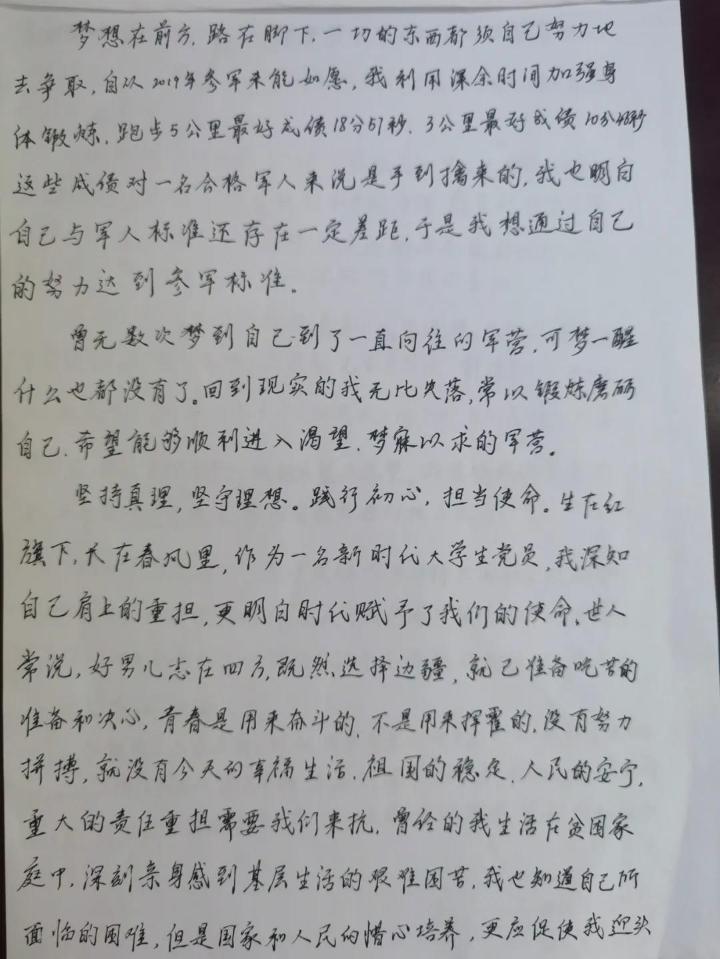 梦想在前方,路在脚下,一切的东西都须自己努力地
去争取,自从2019年参军未能如愿,我利用课余时间加强身
体锻炼,跑步5公里最好成绩18分57秒.3公里最好成绩10分43秒
这些成绩对一名合格军人来说是手到擒来的,我也明白
自己与军人标准还存在一定差距,于是我想通过自己
的努力达到参军标准。
曾无数次梦到自己到了一直向往的军营,可梦一醒
什么也都没有了。回到现实的我无比失落,常以锻炼磨砺
自己.希望能够顺利进入渴望.梦寐以求的军营。
坚持真理,坚守理想。践行初心,担当使命。生在红
旗下,长在春风里,作为一名新时代大学生党员,我深知
自己肩上的重担,更明白时代赋予了我们的使命.世人
常说,好男儿志在四方,既然选择边疆,就已准备吃苦的
准备和决心,青春是用来奋斗的.不是用来挥霍的.没有努力
拼搏,就没有今天的幸福生活.祖国的稳定.人民的安宁,
重大的责任重担需要我们来抗.曾经的我生活在贫困家
庭中,深刻亲身感到基层生活的艰难困苦,我也知道自己所
面临的困难,但是国家和人民的惜心培养,更应促使我迎头